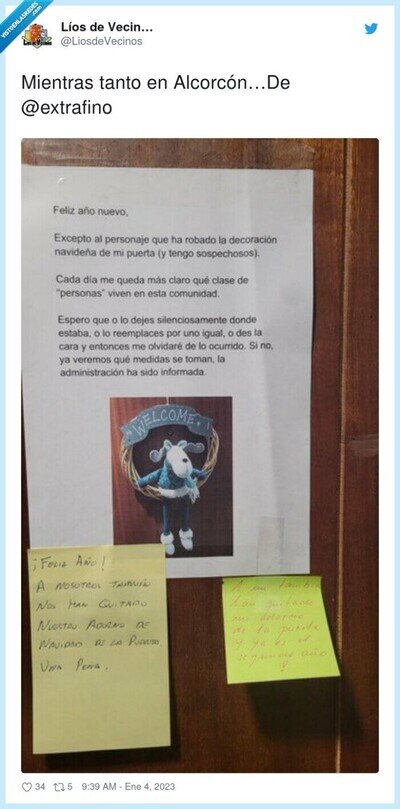 VISTOENLASREDES
.com
Líos de Vecin...
LÍOS DE VECINOS
@LiosdeVecinos
Mientras tanto en Alcorcón…De
@extrafino
Feliz año nuevo,
Excepto al personaje que ha robado la decoración
navideña de mi puerta (y tengo sospechosos).
Cada día me queda más claro qué clase de
"personas" viven en esta comunidad.
Espero que o lo dejes silenciosamente donde
estaba, o lo reemplaces por uno igual, o des la
cara y entonces me olvidaré de lo ocurrido. Si no,
ya veremos qué medidas se toman, la
administración ha sido informada.
WELCOME
¡FELIZ AÑO!
A NOSOTROS TAMBIÉN
NOS HAN QUITADO
NUESTRO ADORNO DE
NAVIDAD DE LA PUERTA
UNA PENA.
A mi también
han quitado
mi adorno
de la puerta
y ya es el
segundo año
!
34 5 9:39 AM - Ene 4, 2023